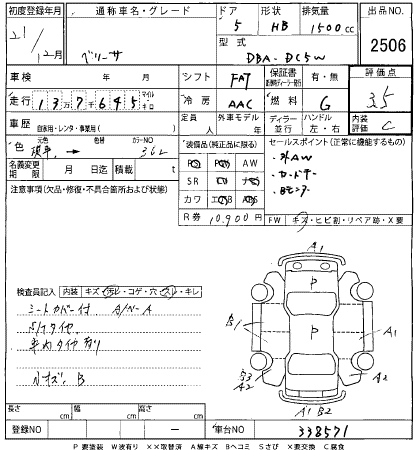 初度登録年月 通称車名・グレード ドア 形状 排気量 出品NO
21/12月 ベリーサ 5 HB 1500cc 2506
型式
DBA-DC5W
車検 年 月 シフト FAT 保証書 有・無 評価点
走行 137645 マイル キロ 冷房 AAC 燃料 G 3.5
車歴 自家用・レンタ・事業用( ) 定員 人 外車モデル 年 ディーラー 並行 ハンドル 左・右 内装評価 C
色 元色 色替 カラーNO 36L 装備品(純正品に限る) セールスポイント(正常に機能するもの)
名義変更期限 月 日迄 積載 t PS PW AW ・外AW
SR ナビ TV ・カードキー
注意事項(欠品・修復・不具合箇所および状態) カワ エアB ABS
R券 10,900円 FW キズ・ヒビ割・リペア跡・X要
検査員記入 内装 キズ・汚レ・コゲ・穴・スレ・キレ
シートカバー付 A/ベーA
車内タイヤ有り
小キズ、B
A1
P
B1 P A1
B3 A2 A2
A1 B2
長さ cm 幅 cm 高さ cm
登録NO — 車台NO 338571
P要塗装 W波有り ××取替済 A線キズ Bヘコミ Sさび ×要交換 C腐食